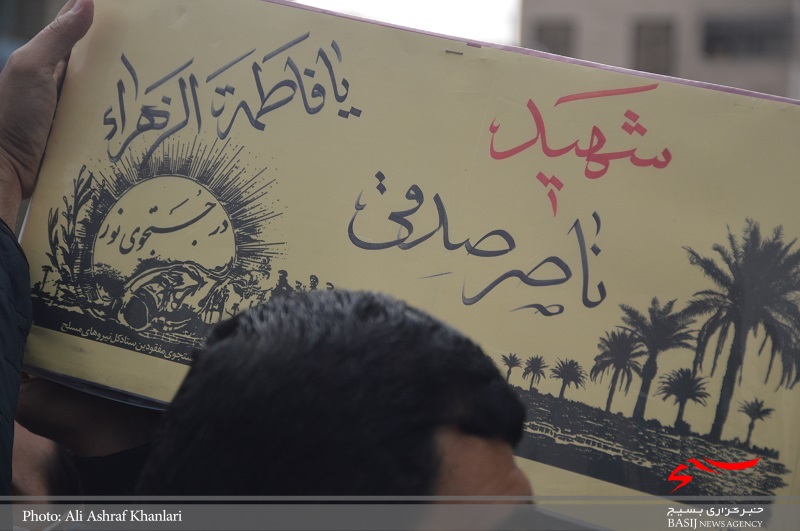 یا فاطمة الزهراء
شهید
ناصر صدقی
در جستجوی نور
جستجوی مفقودین ستاد کل نیروهای مسلح
Photo: Ali Ashraf Khanlari
خبرگزاری بسیج
BASIJ NEWS AGENCY